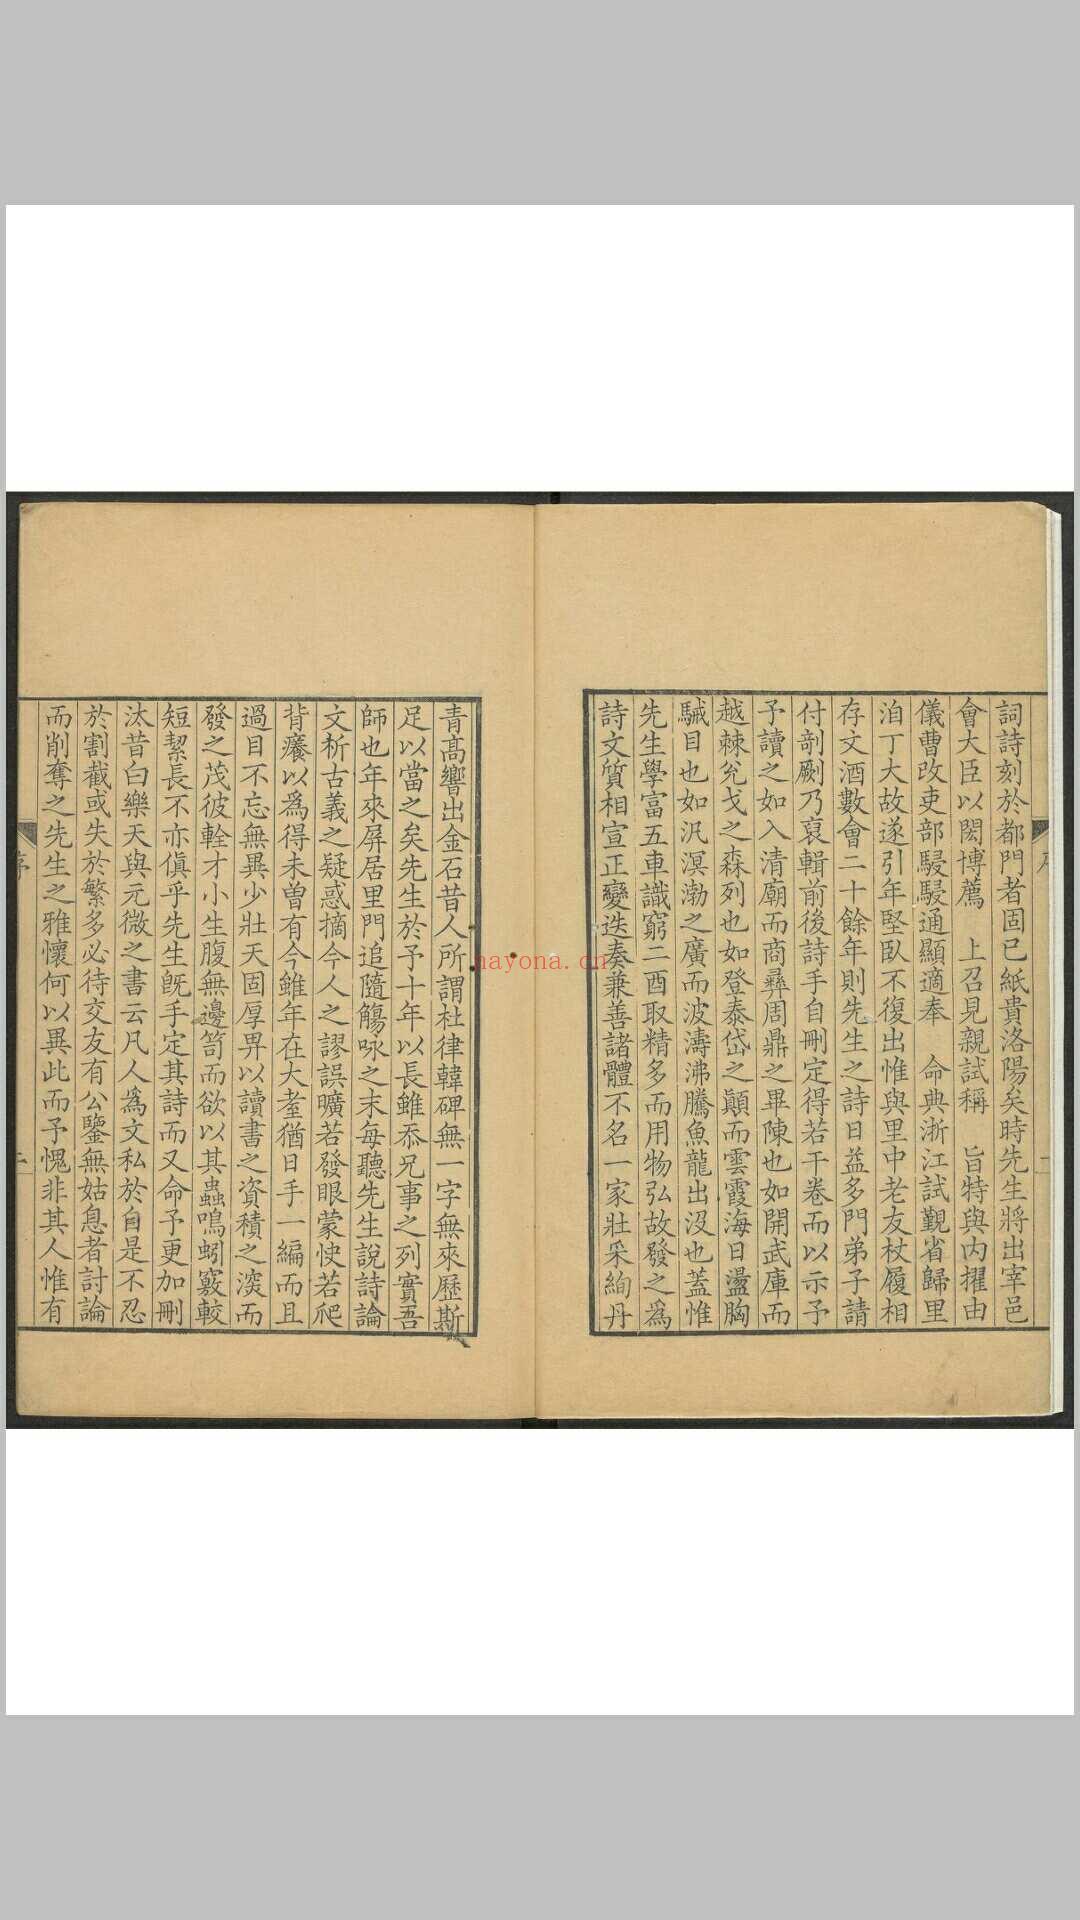 詞詩刻於都門者固已紙貴洛陽矣時先生將出宰邑
會大臣以閎博薦　上召見親試稱　旨特與內擢由
儀曹改吏部駸駸通顯適奉　命典浙江試覲省歸里
洎丁大故遂引年堅臥不復出惟與里中老友杖履相
存文酒數會二十餘年則先生之詩日益多門弟子請
付剞劂乃裒輯前後詩手自刪定得若干卷而以示予
予讀之如入清廟而商彝周鼎之畢陳也如開武庫而
越棘兊戈之森列也如登泰岱之顚而雲霞海日盪胸
駴目也如汎溟渤之廣而波濤沸騰魚龍出沒也蓋惟
先生學富五車識窮二酉取精多而用物弘故發之為
詩文質相宣正變迭奏兼善諸體不名一家壯采絢丹
青高響出金石昔人所謂杜律韓碑無一字無來歷斯
足以當之矣先生於予十年以長雖忝兄事之列實吾
師也年來屏居里門追隨觴咏之末每聽先生說詩論
文析古義之疑惑摘今人之謬誤曠若發眼蒙快若爬
背癢以為得未曾有今雖年在大耋猶日手一編而且
過目不忘無異少壯天固厚畀以讀書之資積之深而
發之茂彼輇才小生腹無邊笥而欲以其蟲鳴蚓竅較
短絜長不亦傎乎先生旣手定其詩而又命予更加刪
汰昔白樂天與元微之書云凡人為文私於自是不忍
於割截或失於繁多必待交友有公鑒無姑息者討論
而削奪之先生之雅懷何以異此而予愧非其人惟有
序
二
nayona.cn